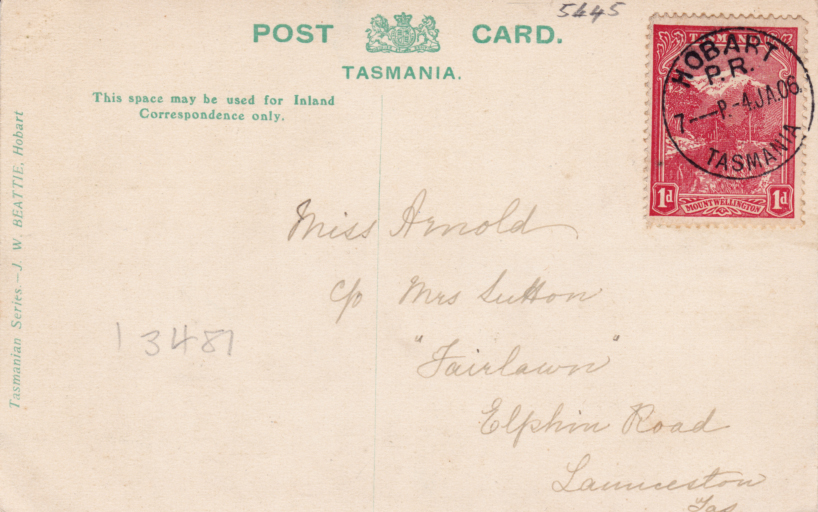 5445
POST CARD.
TASMANIA.
This space may be used for Inland
Correspondence only.
Tasmanian Series—J. W. BEATTIE, Hobart
TASMANIA
HOBART
P.R.
7—P.-4.JA.06
TASMANIA
1d
MOUNT WELLINGTON
1d
Miss Arnold
c/o Mrs Sutton
"Fairlawn"
Elphin Road
Launceston
Tas
13481